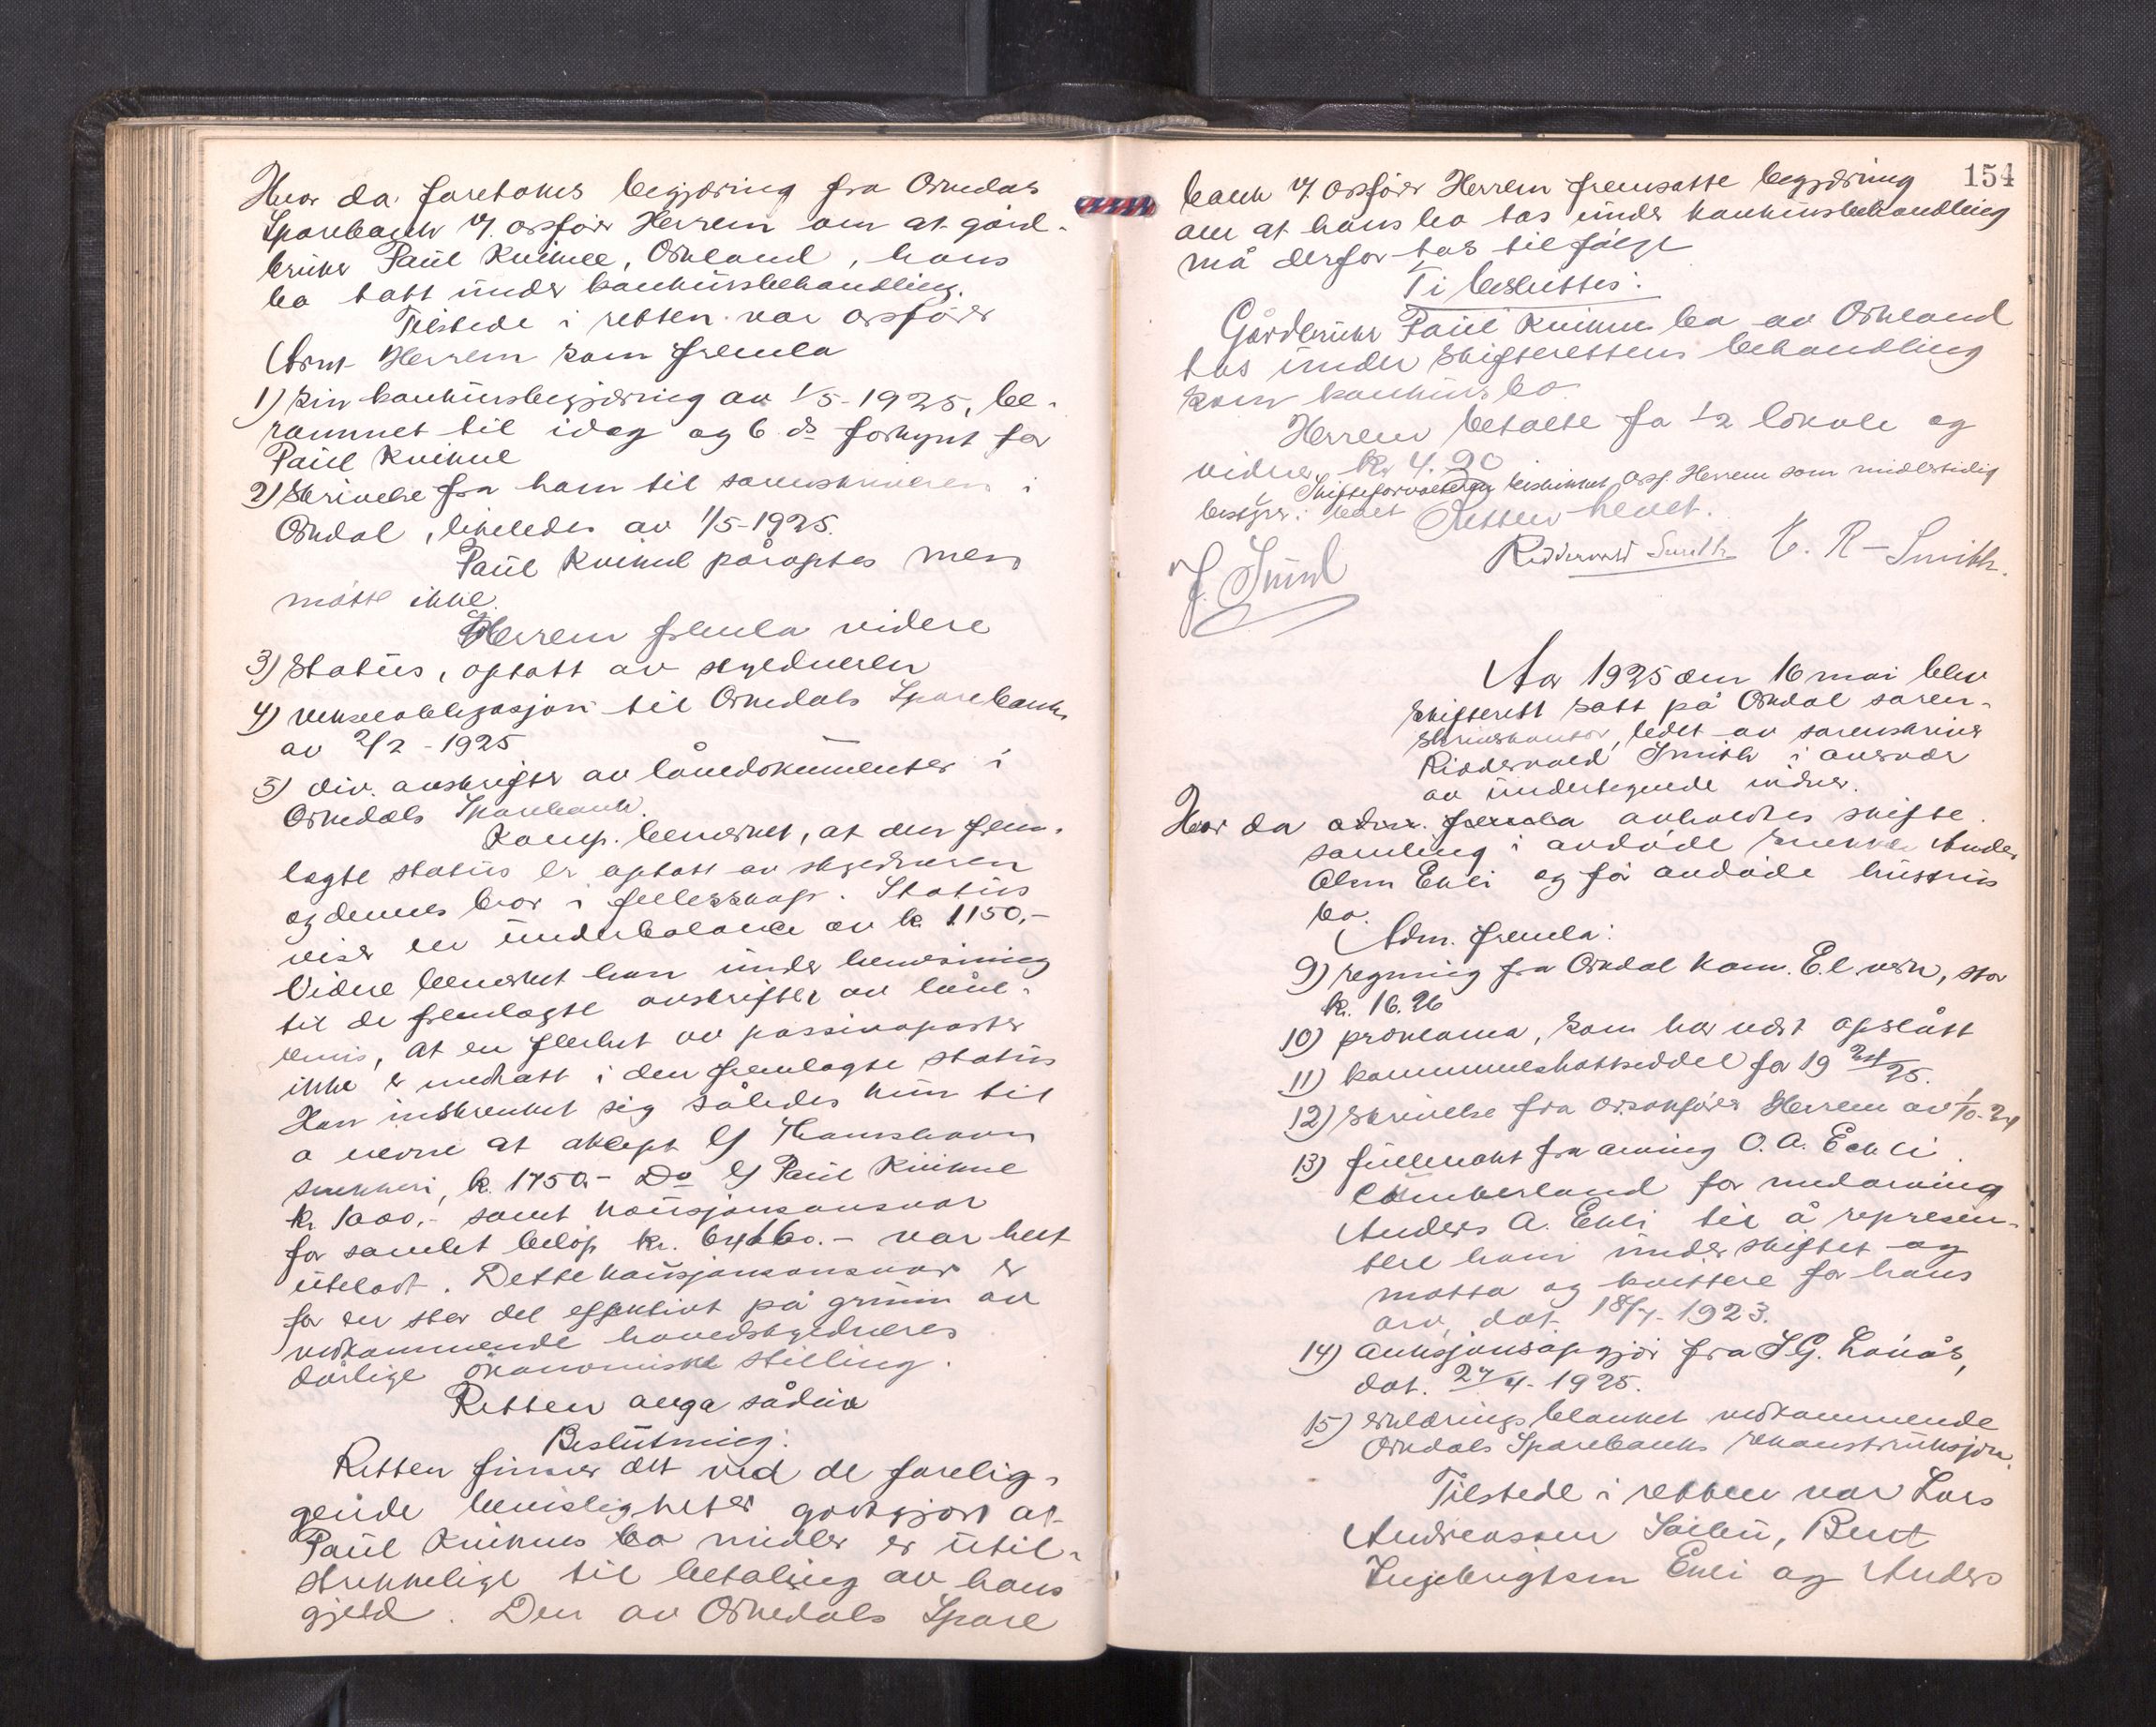 Hvor da foretokes begjæring fra Orkedals
Sparebank v/ orsfører Herrem om at gård-
bruker Paul Kvikne, Orkland, hans
bo tatt under konkursbehandling.
Tilstede i retten var orsfører
Arnt Herrem som fremla
1) sin konkursbegjæring av 1/5-1925, be-
rammet til idag og 6 ds forkynt for
Paul Kvikne
2) Skrivelse fra ham til sorenskriveren i
Orkdal, likeledes av 1/5-1925.
Paul Kvikne påroptes men
møtte ikke.
Herrem fremla videre
3) Status, optatt av skyldneren
4) vekselobligasjon til Orkedals Sparebank
av 2/2-1925
5) div. avskrifter av lånedokumenter i
Orkedals Sparebank.
Komp. bemerket, at den frem-
lagte status er optatt av skyldneren
og dennes bror i fellesskap. Status
viser en underbalanse av kr. 1150,-
Videre bemerket han under henvisning
til de fremlagte avskrifter av låne-
bevis, at en flerhet av passivaposter
ikke er medtatt i den fremlagte status
Han innskrenket sig således kun til
å nevne at aksept V/ Thamshavn
snekkeri, kr. 1750.- Do V/ Paul Kvikne
kr 1000.- samt kausjonsansvar
for samlet beløp kr. 64660.- var helt
utelatt. Dette kausjonsansvar er
for en stor del effektivt på grunn av
vedkommende hovedskyldneres
dårlige økonomiske stilling.
Retten avga sådan
Beslutning:
Retten finner det ved de forelig-
gende bevisligheter godtgjort at
Paul Kviknes bo midler er util-
strekkelige til betaling av hans
gjeld. Den av Orkedals Spare
154
bank v/ orsfører Herrem fremsatte begjæring
om at hans bo tas under konkursbehandling
må derfor tas tilfølge
Ti besluttes:
Gårdbruker Paul Kvikne bo av Orkland
tas under Skifterettens behandling
som konkursbo.
Herrem betalte for 1/2 lokale og
vidner kr 4.20
Skifteforvalteren beskikket orsf. Herrem som midlertidig
bestyrer i boet Retten hevet.
Riddervold Smith E. R-Smith.
Aar 1925 den 16 mai blev
skifterett satt på Orkdal soren-
skriverkontor, ledet av sorenskriver
Riddervold Smith i overvær
av undertegnede vidner.
Hvor da adm. fremla avholdtes skifte-
samling i avdøde snekker Anders
Olsen Ekli og før avdøde hustrus
bo.
Adm. fremla:
9) regning fra Orkdal Kom. El. verk, stor
kr. 16.26
10) proklama, som har vært opslått
11) kommuneskatteseddel for 19 24/25.
12) Skrivelse fra orsakfører Herrem av 1/10-24
13) fullmakt fra arving O. A. Eekli
Cumberland for medarving
Anders A. Ekli til å represen-
tere ham under skiftet og
motta og kvittere for hans
arv, dat. 18/4-1923.
14) auksjonsopgjør fra S G. Lonås,
dat. 27/4-1925.
15) erklæringsblanket vedkommende
Orkdals Sparebanks rekonstruksjon.
Tilstede i retten var Lars
Andreassen Solbu, Bent
Ingebrigtsen Ekli og Anders